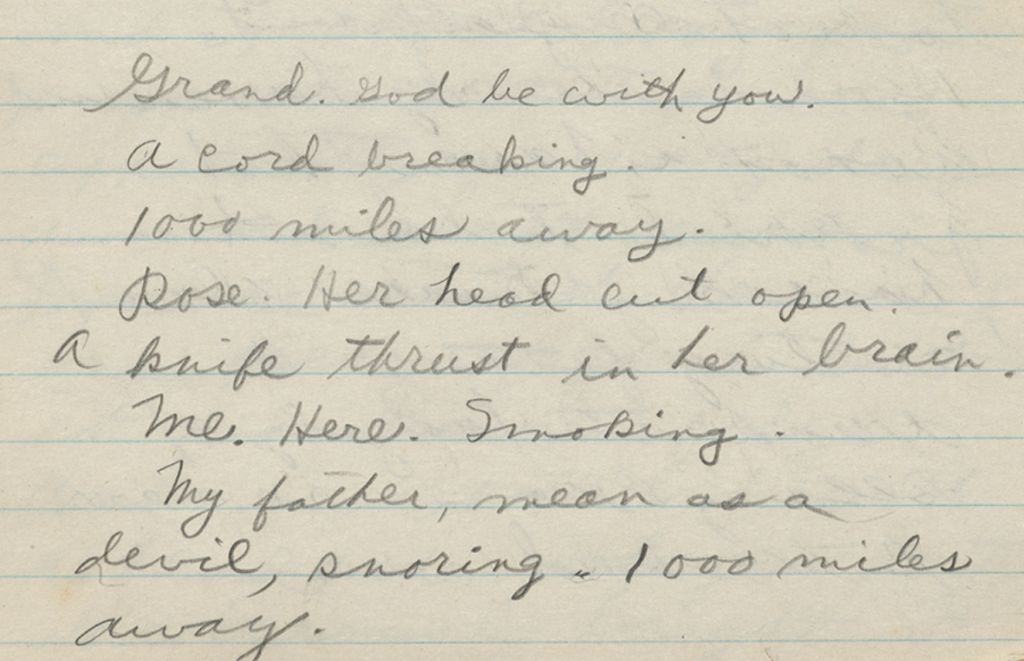 Grand. God be with you.
A cord breaking.
1000 miles away.
Rose. Her head cut open.
A knife thrust in her brain.
Me. Here. Smoking.
My father, mean as a
devil, snoring - 1000 miles
away.